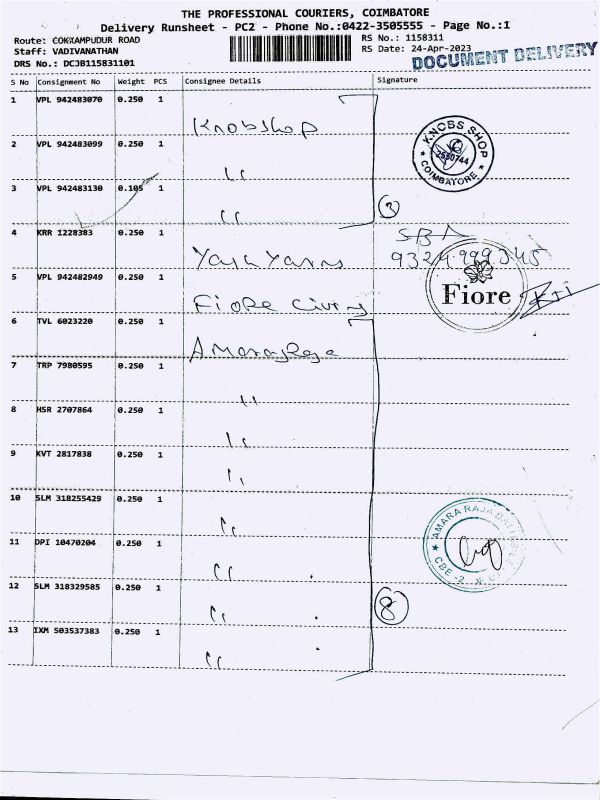 THE PROFESSIONAL COURIERS, COIMBATORE
Delivery Runsheet - PC2 - Phone No.:0422-3505555 - Page No.:1
Route: COKRAMPUDUR ROAD
RS No.: 1158311
Staff: VADIVANATHAN
RS Date: 24-Apr-2023
DRS No.: DCJB115831101
DOCUMENT DELIVERY
S No Consignment No Weight PCS Consignee Details Signature
1 VPL 942483070 0.250 1
Knobshop
KNOBS SHOP
2550744
COIMBATORE
2 VPL 942483099 0.250 1
〃
3 VPL 942483130 0.105 1
〃
3
4 KRR 1228383 0.250 1
5 VPL 942482949 0.250 1
Fiore
6 TVL 6023220 0.250 1
AmaraRaja
7 TRP 7980595 0.250 1
〃
8 HSR 2707864 0.250 1
〃
9 KVT 2817838 0.250 1
〃
10 SLM 318255429 0.250 1
〃
AMARA RAJA
CBE-2
11 DPI 10470204 0.250 1
〃
12 SLM 318329585 0.250 1
〃
8
13 IXM 503537383 0.250 1
〃